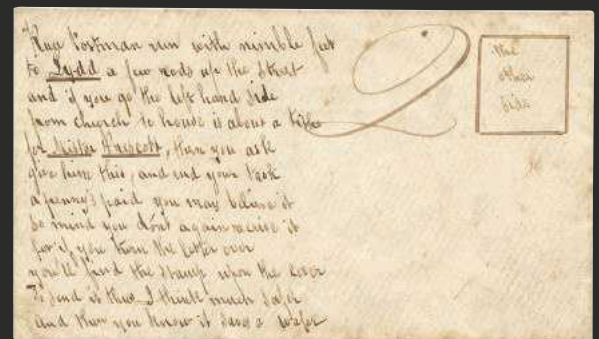 Postman run with nimble feet
to Lydd a few rods up the Street
and if you go the left hand side
from church to house is about a
for Mister Prescott, then you ask
give him this, and end your task
a penny's paid you may believe it
so mind you don't again receive it
for if you turn the letter over
you'll find the stamp upon the cover
To send it thus I think much safer
and then you know it saves a wafer
the
other
side